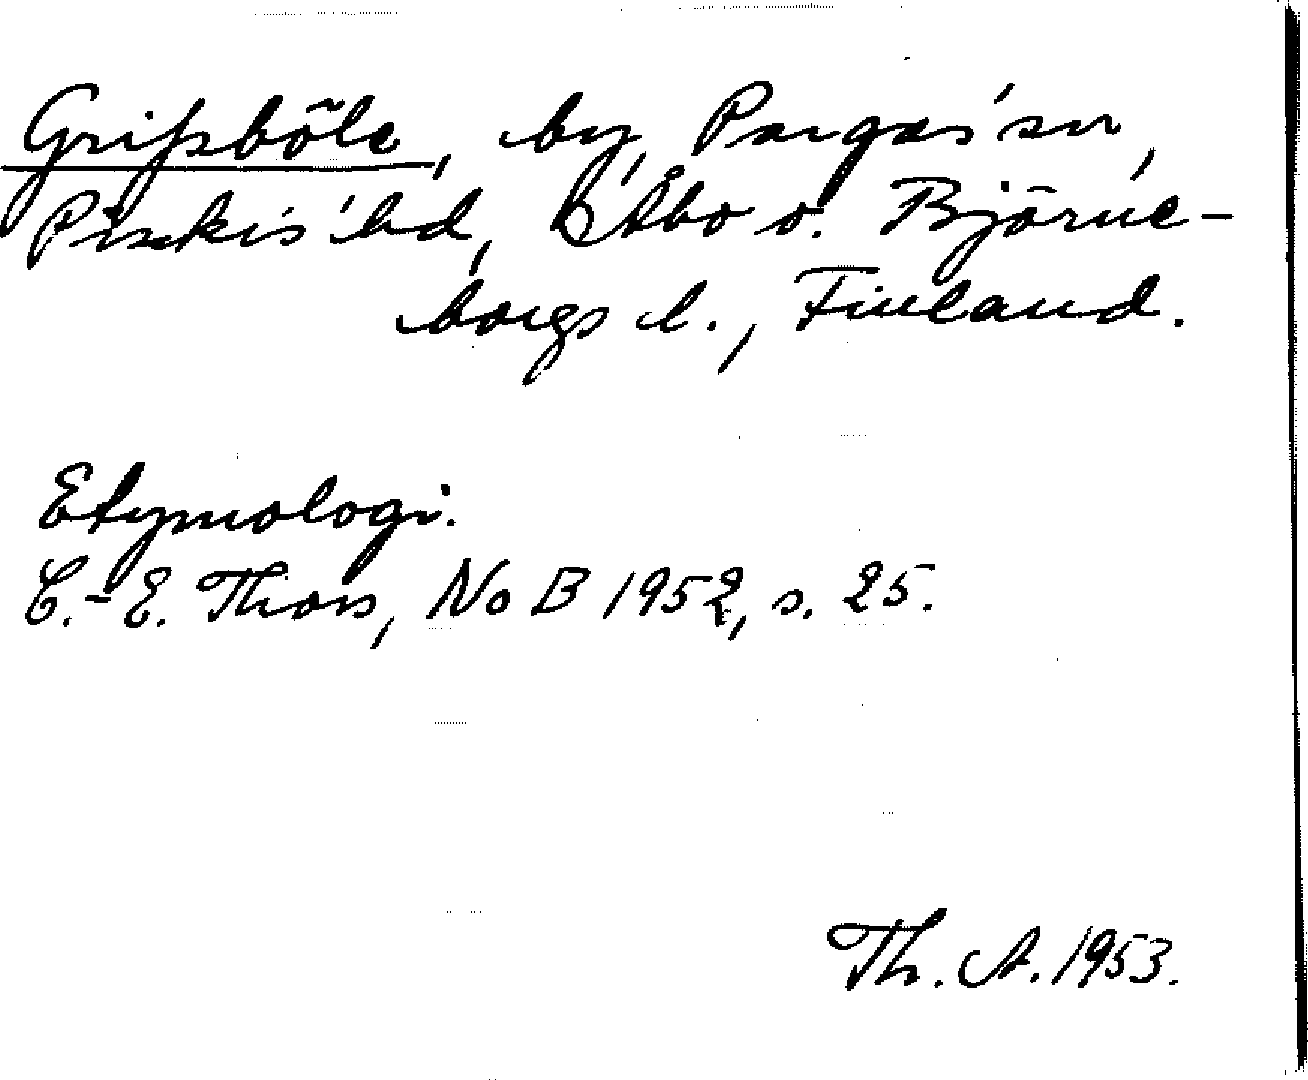 Gripsböle, by, Pargas' sn,
Pixkis' hd, Åbo o. Björne-
borgs l., Finland.
Etymologi.
C.-E. Thors, NoB 1952, s. 25.
Th. A. 1953.